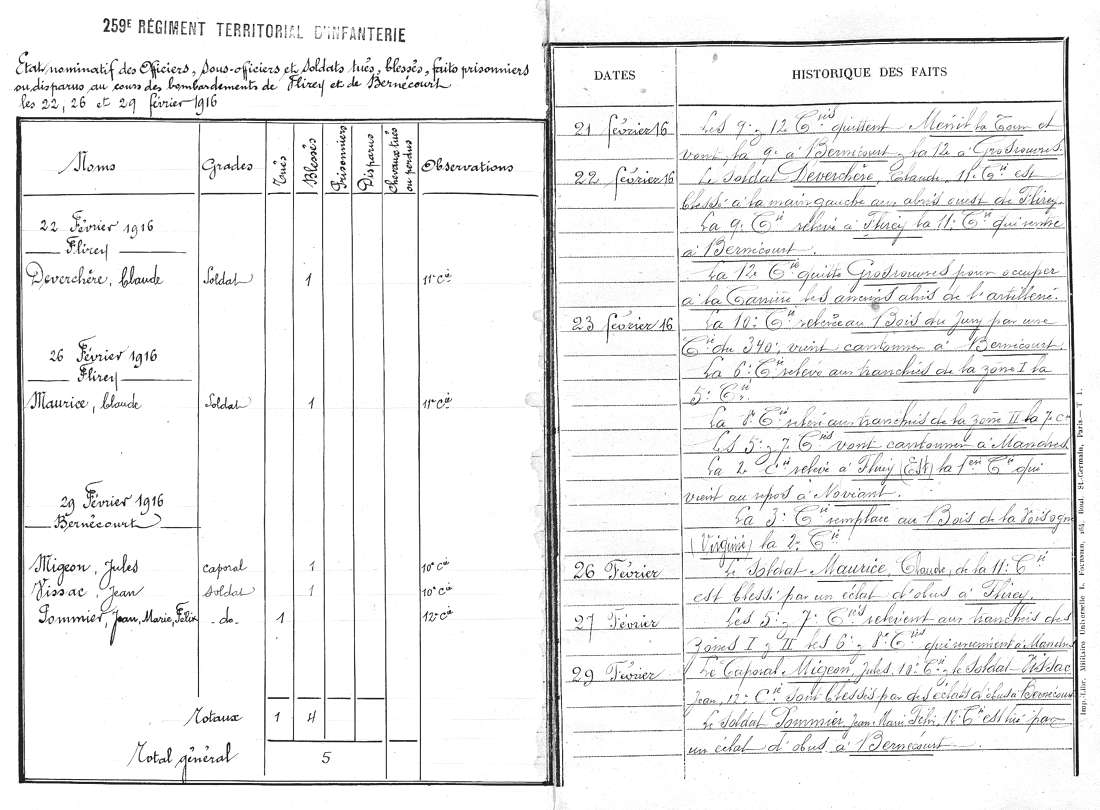 259e RÉGIMENT TERRITORIAL D'INFANTERIE
Etat nominatif des Officiers, Sous-officiers et Soldats tués, blessés, faits prisonniers
ou disparus au cours des bombardements de Flirey et de Bernécourt
les 22, 26 et 29 février 1916
Noms Grades Tués Blessés Prisonniers Disparus Chevaux tués ou perdus Observations
22 Février 1916
Flirey
Deverchère, Claude Soldat 1 11e Cie
26 Février 1916
Flirey
Maurice, Claude Soldat 1 11e Cie
29 Février 1916
Bernécourt
Migeon, Jules caporal 1 10e Cie
Vissac, Jean Soldat 1 10e Cie
Pommier, Jean, Marie, Félix - do - 1 12e Cie
Totaux 1 4
Total général 5
DATES HISTORIQUE DES FAITS
21 février 16 Les 9e & 12e Cies quittent Ménil la Tour et
vont, la 9e à Bernécourt, la 12e à Grosrouvres.
22 février 16 Le Soldat Deverchère, Claude, 11e Cie est
blessé à la main gauche aux abris ouest de Flirey.
La 9e Cie relève à Flirey la 11e Cie qui rentre
à Bernécourt.
La 12e Cie quitte Grosrouvres pour occuper
à la Carrière les anciens abris de l'artillerie.
23 février 16 La 10e Cie relevée au Bois du Jury par une
Cie du 340e, vient cantonner à Bernécourt.
La 6e Cie relève aux tranchées de la zone I la
5e Cie.
La 8e Cie relève aux tranchées de la zone II la 7e Cie
Les 5e & 7e Cies vont cantonner à Mandres
La 2e Cie relève à Flirey (Est) la 1ère Cie qui
vient au repos à Noviant.
La 3e Cie remplace au Bois de la Voisogne
(Virginie) la 2e Cie
26 Février Le Soldat Maurice, Claude, de la 11e Cie
est blessé par un éclat d'obus à Flirey.
27 Février Les 5e & 7e Cies relèvent aux tranchées des
Zones I & II les 6e & 8e Cies qui reviennent à Mandres
29 Février Le Caporal Migeon, Jules, 10e Cie & le Soldat Vissac
Jean, 12e Cie sont blessés par des éclats d'obus à Bernécourt
Le Soldat Pommier, Jean Marie Félix, 12e Cie est tué par
un éclat d'obus à Bernécourt.
Imp.-Libr. Militaire Universelle L. FOURNIER, 264, Boul. St-Germain, Paris. — T 1.